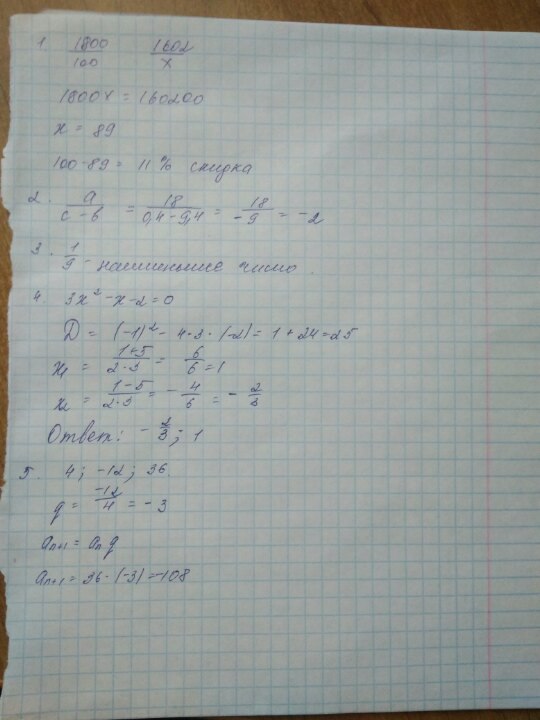 1. 1800/100 1602/x
1800x = 160200
x = 89
100-89 = 11% скидка
2. a/(c-b) = 18/(0,4-9,4) = 18/-9 = -2
3. 1/9 - наименьшее число.
4. 3x² - x - 2 = 0
D = (-1)² - 4·3·(-2) = 1 + 24 = 25
x₁ = (1+5)/(2·3) = 6/6 = 1
x₂ = (1-5)/(2·3) = -4/6 = -2/3
Ответ: -2/3; 1
5. 4; -12; 36.
q = -12/4 = -3
aₙ₊₁ = aₙq
aₙ₊₁ = 36·(-3) = -108